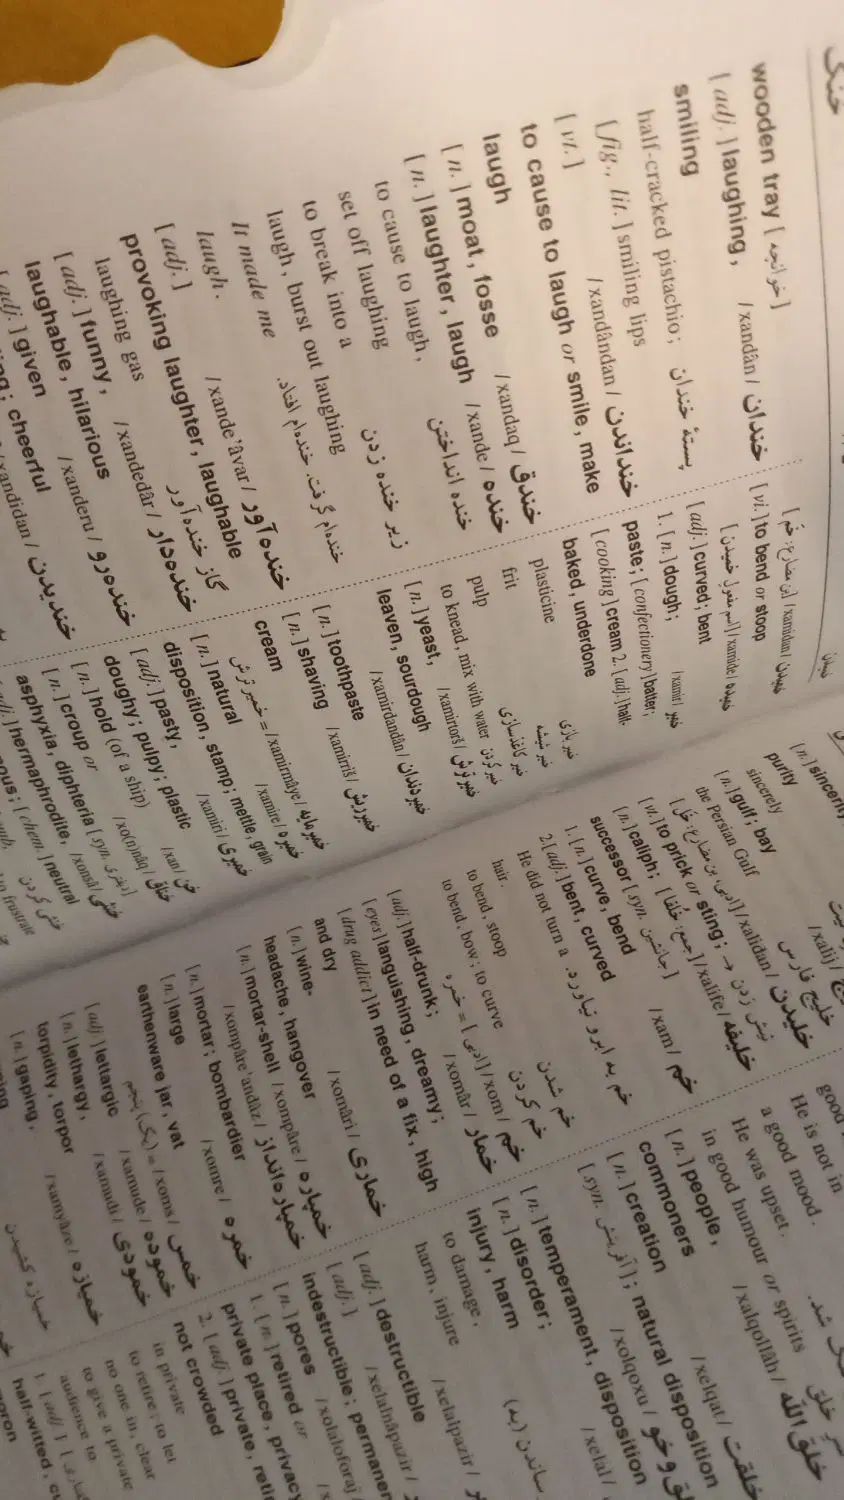 خنک
wooden tray [خوانچه]
خندان / xandân / [adj.] laughing,
smiling
پستهٔ خندان half-cracked pistachio;
[fig., lit.] smiling lips
خنداندن / xandândan / [vt.]
to cause to laugh or smile, make
laugh
خندق / xandaq / [n.] moat, fosse
خنده / xande / [n.] laughter, laugh
خنده انداختن to cause to laugh,
set off laughing
زیر خنده زدن to break into a
laugh, burst out laughing
خنده‌ام گرفت. خنده‌ام افتاد. It made me
laugh.
خنده‌آور / xande'âvar / [adj.]
provoking laughter, laughable
گاز خنده‌آور laughing gas
خنده‌دار / xandedâr / [adj.] funny,
laughable, hilarious
خنده‌رو / xanderu / [adj.] given
cheerful
خندیدن / xandidan /
خمیدن
خمیدن / xamidan / [بن مضارع: خَم]
[vi.] to bend or stoop
خمیده / xamide / [اسم مفعولِ خمیدن]
[adj.] curved; bent
خمیر / xamir / 1. [n.] dough;
paste; [confectionery] batter;
[cooking] cream 2. [adj.] half-
baked, underdone
خمیر بازی plasticine
خمیر شیشه frit
خمیر کاغذسازی pulp
خمیر کردن to knead, mix with water
خمیرترش / xamirtorš / [n.] yeast,
leaven, sourdough
خمیردندان / xamirdandân / [n.] toothpaste
خمیرریش / xamirriš / [n.] shaving
cream
خمیرمایه / xamirmâye / = خمیر ترش
خمیره / xamire / [n.] natural
disposition, stamp; mettle, grain
خمیری / xamiri / [adj.] pasty,
doughy; pulpy; plastic
خن / xan / [n.] hold (of a ship)
خناق / xo(n)nâq / [n.] croup or
asphyxia, diphteria [syn. دیفتری]
خنثی / xonsâ / [adj.] hermaphrodite,
[chem.] neutral
خنثی کردن to frustrate
[n.] sincerity
purity
sincerely
/ xalij / [n.] gulf; bay
خلیج فارس the Persian Gulf
خلیدن / xalidan / [ادبی، بن مضارع: خَل]
[vi.] to prick or sting; → نیش زدن
خلیفه / xalife / [جمع: خُلَفا]
[n.] caliph;
successor [syn. جانشین]
خم / xam / 1. [n.] curve, bend
2. [adj.] bent, curved
خم به ابرو نیاورد. He did not turn a
hair.
خم شدن to bend, stoop
خم کردن to bend, bow; to curve
خم / xom / [ادبی] = خمره
خمار / xomâr / [adj.] half-drunk;
[eyes] languishing, dreamy;
[drug addict] in need of a fix, high
and dry
خماری / xomâri / [n.] wine-
headache, hangover
خمپاره / xompâre / [n.] mortar-shell
خمپاره‌انداز / xompâre'andâz /
[n.] mortar; bombardier
خمره / xomre / [n.] large
earthenware jar, vat
خمس / xoms / = (یک) پنجم
خموده / xamude / [adj.] lettargic
خمودی / xamudi / [n.] lethargy,
torpidity, torpor
خمیازه / xamyâze / [n.] gaping,
خمیازه کشیدن
good
He is not in
a good mood.
He was upset.
in good humour or spirits
خلق‌الله / xalqollâh / [n.] people,
commoners
خلقت / xelqat / [n.] creation
[syn. آفرینش]; natural disposition
/ xolqoxu / [n.] temperament, disposition
/ xelal / [n.] disorder;
injury, harm
to damage,
harm, injure
/ xelalpazir / [adj.] destructible
/ xelalnâpazir / [adj.]
indestructible; permanent
/ xolaloforaj / [n.] pores
1. [n.] retired or
private place, privacy
2. [adj.] private,
not crowded
in private
to retire; to let
no one in, clear
to give a private
audience to
1. [adj.]
half-witted,
moron